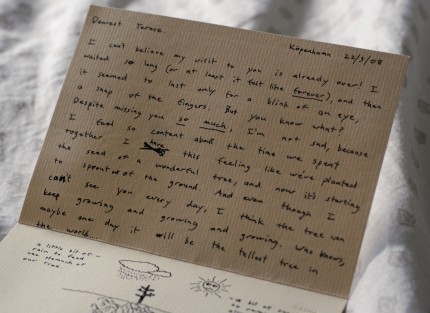 Dearest Terese.
Köpenhamn 22/3/08
I can't believe my visit to you is already over! I
waited so long (or at least it felt like forever), and then
it seemed to last only for a blink of an eye,
a snap of the fingers. But you know what?
Despite missing you so much, I'm not sad, because
I feel so content about the time we spent
together. I have this feeling like we've planted
the seed of a wonderful tree, and now it's starting
to sprout of the ground. And even though I
can't see you every day, I think the tree can
keep growing and growing and growing. Who knows,
maybe one day it will be the tallest tree in
the world.
a little bit of
rain to feed
the stomach of
our tree
- a bit of